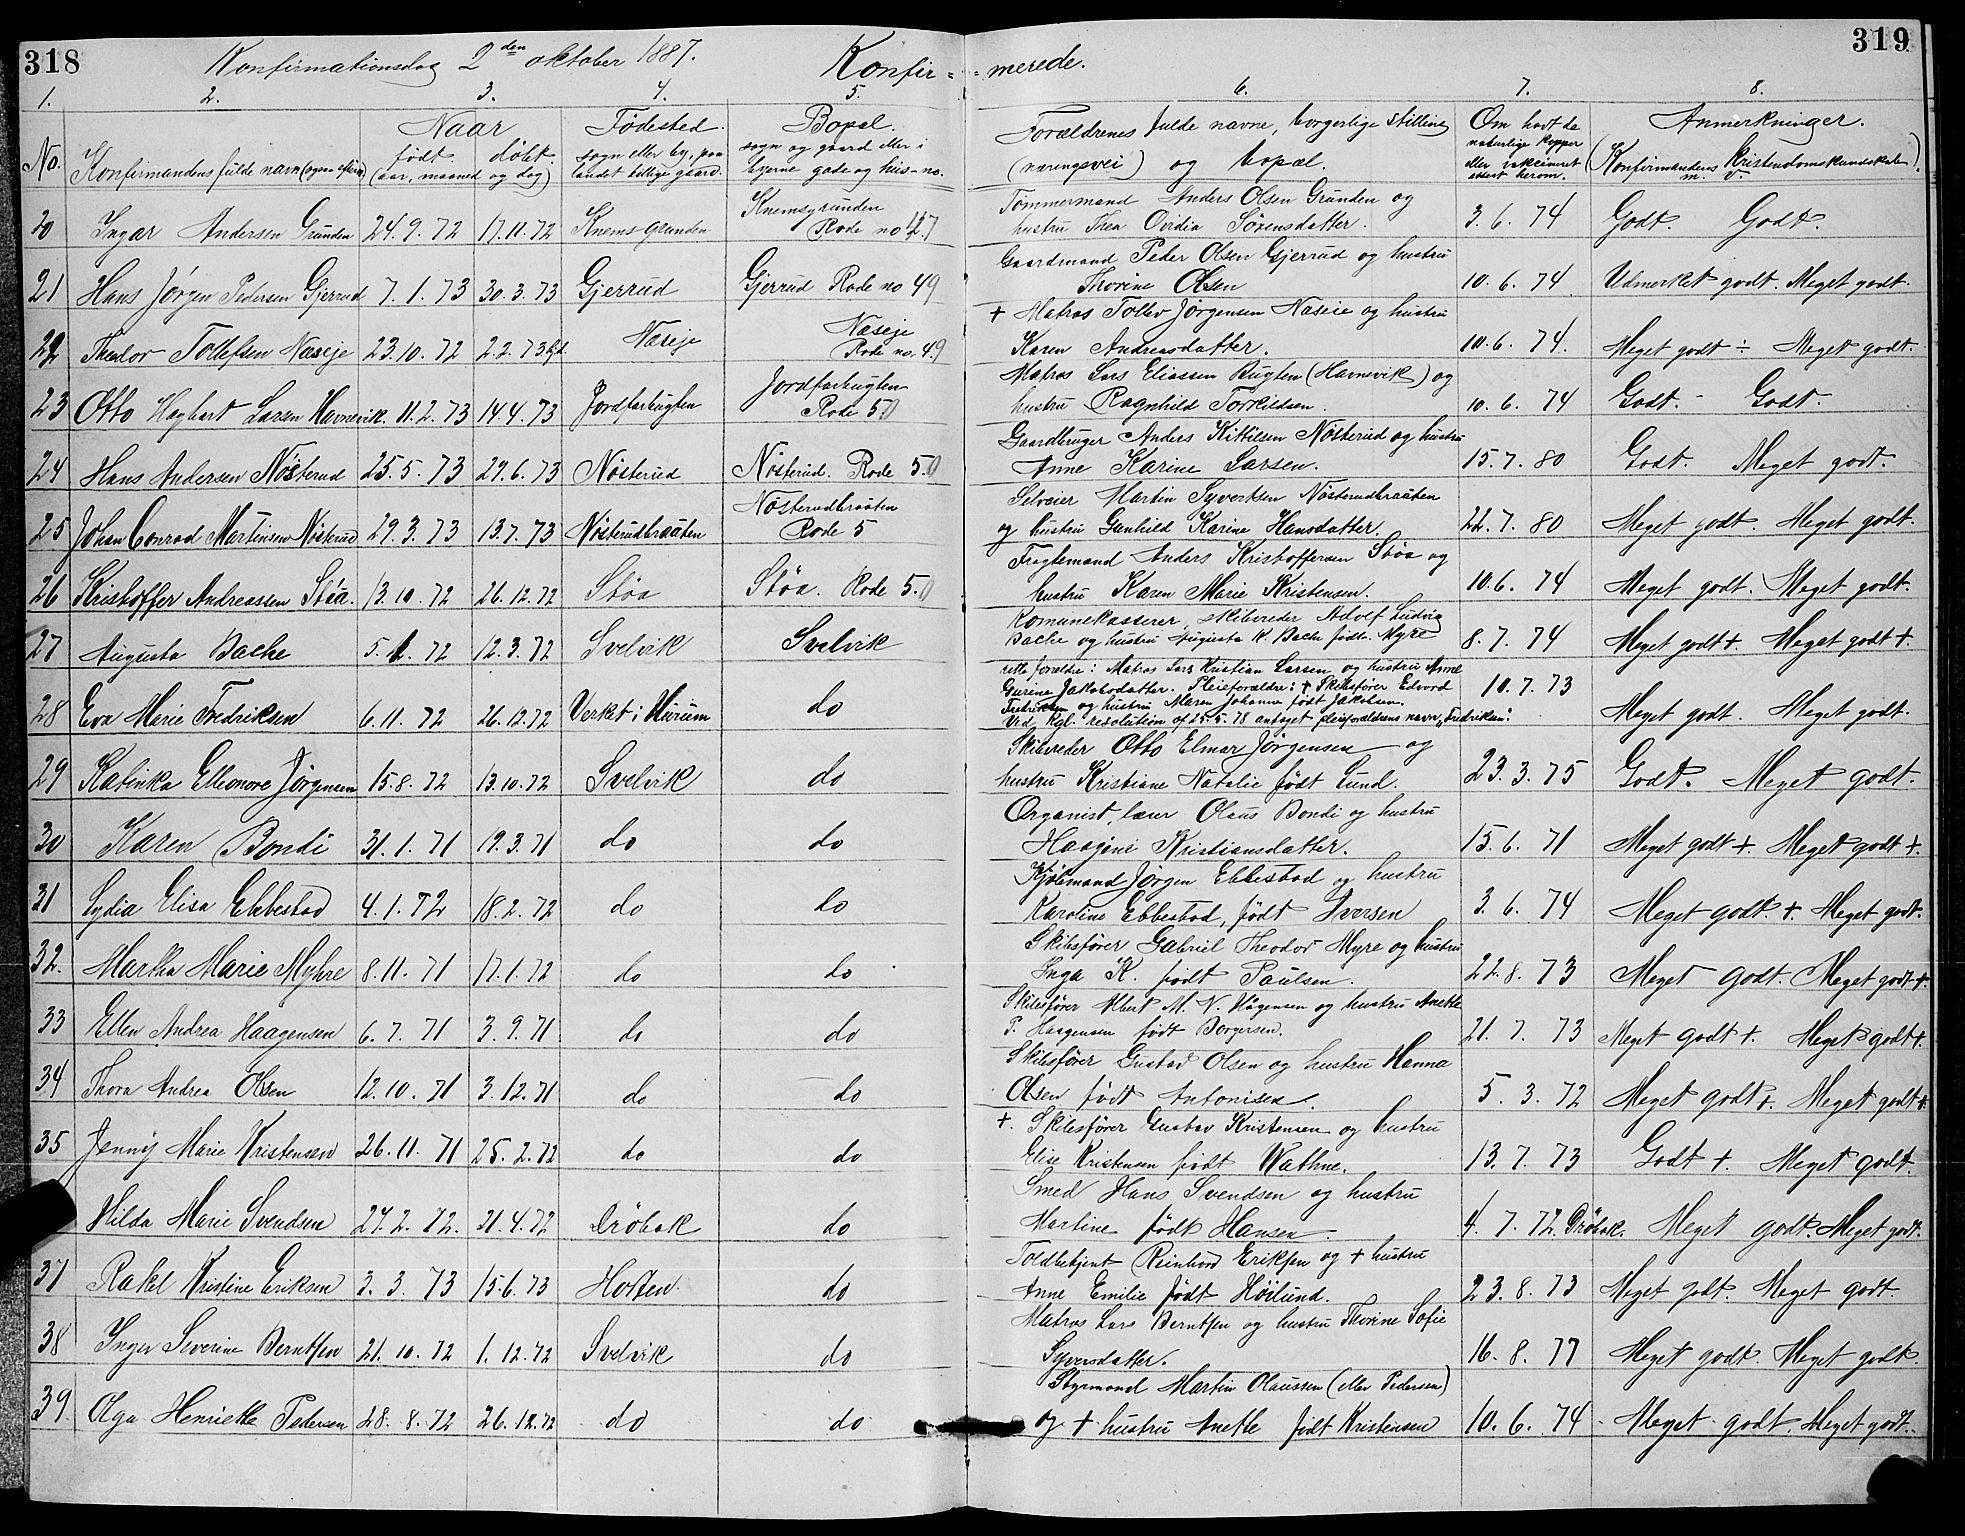 318 Konfirmationsdag 2den oktober 1887. Konfir= =merede. 319
1. 2. 3. 4. 5. 6. 7. 8.
No. Konfirmandens fulde navn Naar født døbt (aar, maaned og dag) Fødested. sogn eller by, paa landet tillige gaard. Bopæl. sogn og gaard eller i byerne gade og hus-no. Forældrenes fulde navne, borgerlige stilling (næringsvei) og bopæl. Om havt de naturlige kopper eller vakcineret attest herom. Anmerkninger. (Konfirmandens kristendomskundskab m. v.)
20 Ingar Andersen Grunden 24.9.72 17.11.72 Knemsgrunden Knemsgrunden Rode no 47 Tømmermand Anders Olsen Grunden og hustru Thea Ovidia Sørensdatter. 3.6.74 Godt. Godt.
21 Hans Jørgen Pedersen Gjerrud 7.1.73 30.3.73 Gjerrud Gjerrud Rode no 49 Gaardmand Peder Olsen Gjerrud og hustru Thorine Olsen 10.6.74. Udmerket godt. Meget godt.
22 Theodor Tollefsen Næseje 23.10.72 2.2.73 Næseje Næseje Rode no. 49 + Matros Tollev Jørgensen Naseie og hustru Karen Andreasdatter. 10.6.74. Meget godt ÷ Meget godt.
23 Otto Hagbart Larsen Havnevik. 11.2.73 14.4.73 Jordfarbugten Jordfarbugten Rode 50 Matros Lars Eliassen Bugten (Havnevik) og hustru Ragnhild Torkildsen. 10.6.74 Godt. - Godt.
24 Hans Andersen Nøsterud 25.5.73 29.6.73 Nøsterud Nøsterud. Rode 50 Gaardbruger Anders Kittilsen Nøsterud og hustru Anne Karine Larsen. 15.7.80 Godt. Meget godt.
25 Johan Conrad Martinsen Nøsterud 29.3.73 13.7.73 Nøsterudbraaten Nøsterudbraaten Rode 5 Selveier Martin Syvertsen Nøsterudbraaten og hustru Gunhild Karine Hansdatter. 22.7.80 Meget godt. Meget godt.
26 Kristoffer Andreassen Støa. 13.10.72 26.12.72 Støa Støa. Rode 50 Fragtemand Anders Kristoffersen Støa og hustru Karen Marie Kristensen. 10.6.74 Meget godt. Meget godt.
27 Augusta Bache 5.1.72 12.3.72 Svelvik Svelvik Komunekasserer, skibsreder Adolf Ludvig Bache og hustru Augusta K. Bache født Myre 8.7.74 Meget godt +. Meget godt +.
28 Eva Marie Fredriksen 6.11.72 26.12.72 Verket i Hurum do rette forældre: Matros Lars Kristian Larsen og hustru Anne Gurine Jakobsdatter. Pleieforældre: + Skibsfører Edvard Fredriksen og hustru Maren Johanne født Jakobsen. Ved kgl. resolution af 25.5.78 antaget pleiefaderens navn "Fredriksen". 10.7.73 Meget godt. Meget godt.
29 Katinka Elleonore Jørgensen 15.8.72 13.10.72 Svelvik do Skibsreder Otto Elmar Jørgensen og hustru Kristiane Natalie født Lund. 23.3.75 Godt. Meget godt.
30 Karen Bondi 31.1.71 19.3.71 do do Organist, lærer Olaus Bondi og hustru Haagine Kristiansdatter. 15.6.71 Meget godt +. Meget godt +.
31 Lydia Elisa Ebbestad 4.1.72 18.2.72 do do Kjøbmand Jørgen Ebbestad og hustru Karoline Ebbestad, født Iversen 3.6.74 Meget godt. +. Meget godt.
32. Martha Marie Myhre 8.11.71 17.1.72 do do Skibsfører Gabriel Theodor Myre og hustru Inga K. født Paulsen. 22.8.73 Meget godt. Meget godt +.
33 Ellen Andrea Haagensen 6.7.71 3.9.71 do do Skibsfører Albert M. N. Hågensen og hustru Anette P. Haagensen født Borgersen. 21.7.73 Meget godt +. Meget godt +.
34 Thora Andrea Olsen 12.10.71 3.12.71 do do Skibsfører Gustav Olsen og hustru Hanna Olsen født Antonisen. 5.3.72 Meget godt +. Meget godt +.
35 Jenny Marie Kristensen 26.11.71 25.2.72 do do +. Skibsfører Gustav Kristensen og hustru Elise Kristensen født Wathne. 13.7.73 Godt +. Meget godt.
Hilda Marie Svendsen 27.2.72. 21.4.72 Drøbak do Smed Hans Svendsen og hustru Martine født Hansen. 4.7.72 Drøbak. Meget godt. Meget godt.
37 Rakel Kristine Eriksen 3.3.73 15.6.73 Horten do Toldbetjent Reinhard Eriksen og + hustru Anne Emilie født Høilund. 23.8.73 Meget godt. Meget godt
38 Inger Severine Berntsen 21.10.72 1.12.72 Svelvik do Matros Lars Berntsen og hustru Thorine Sofie Syversdatter. 16.8.77 Meget godt. Meget godt.
39 Olga Henriette Pedersen 28.8.72 26.12.72 do do Styrmand Martin Olaussen (eller Pedersen) og + hustru Anette født Kristensen 10.6.74 Meget godt. Meget godt.